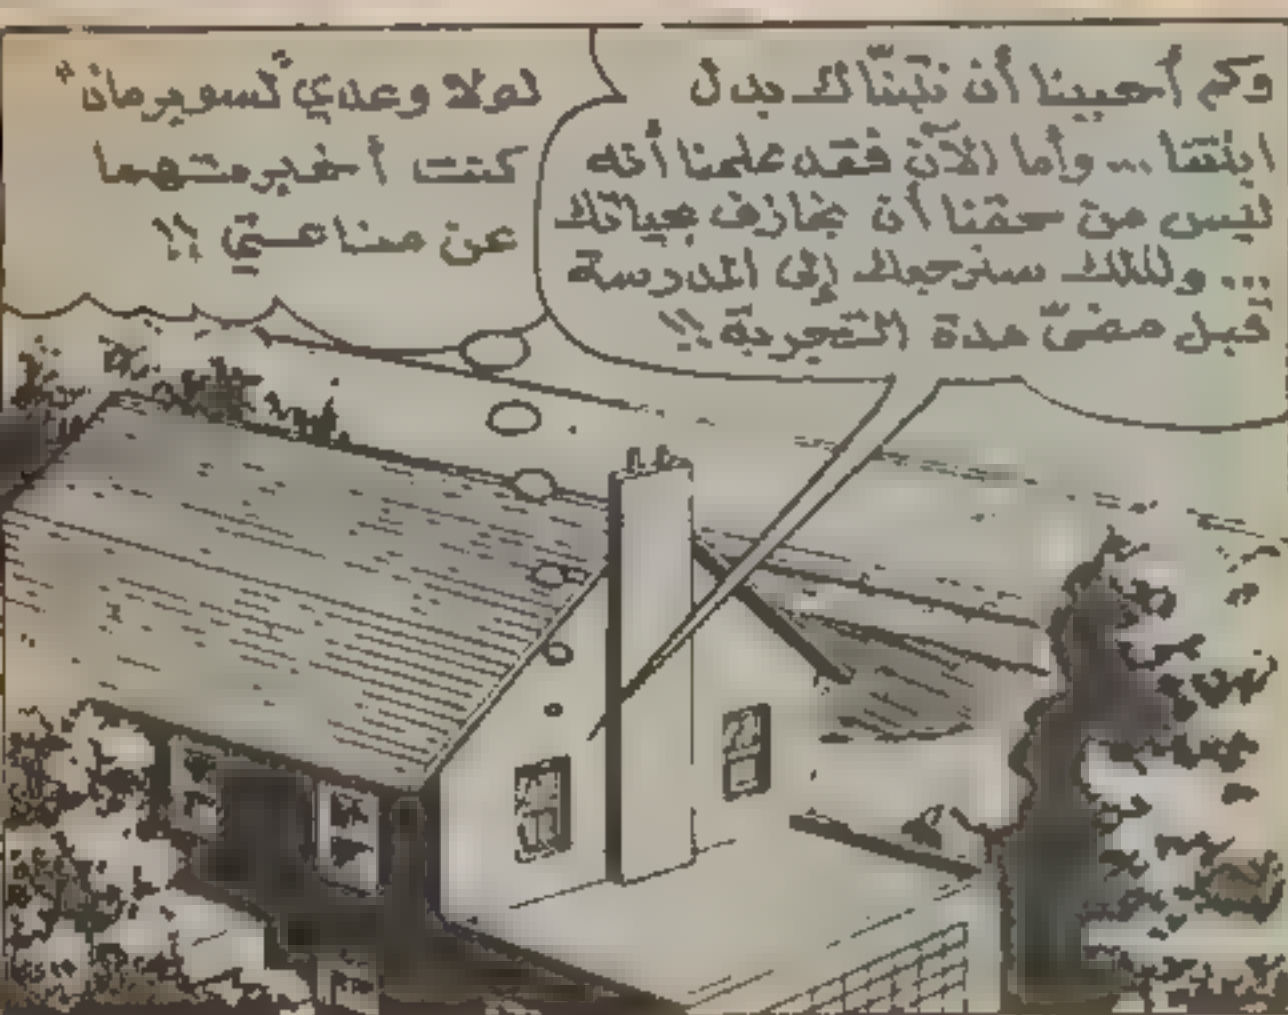 وكم أحببنا أن نتبنّاك بدل
ابنتنا ... وأما الآن فقد علمنا أنه
ليس من حقنا أن نجازف بحياتك
... ولذلك سنرجعك إلى المدرسة
قبل مضيّ مدة التجربة !!
لولا وعدي "لسوبرمان"
كنت أخبرمتهما
عن مناعتي !!